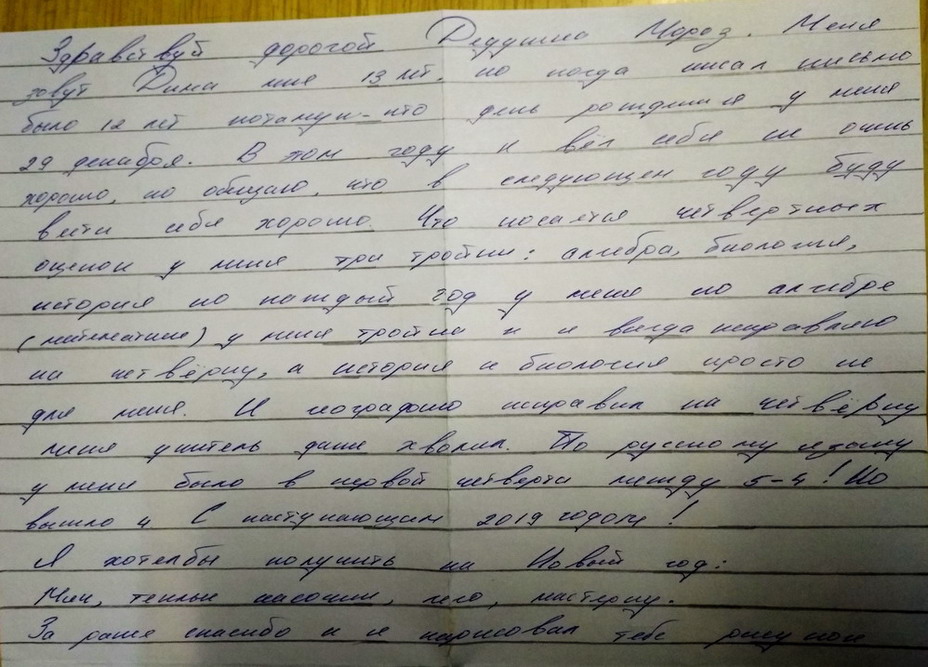 Здравствуй дорогой Дедушка Мороз. Меня
зовут Дима мне 13 лет. но когда писал письмо
было 12 лет потамук-что день рождения у меня
29 декабря. В том году я вёл себя не очень
хорошо, но обещаю, что в следующем году буду
вести себя хорошо. Что касается четвертных
оценок у меня три тройки: алгебра, биология,
история но каждый год у меня по алгебре
(математике) у меня тройка и я всегда исправляю
на четвёрку, а история и биология просто не
для меня. И географию исправил на четвёрку
меня учитель даже хвалил. По русскому языку
у меня было в первой четверти между 5-4! Но
вышло 4 С наступающим 2019 годом!
Я хотелбы получить на Новый год:
теплые, лего,
За ранее спасибо и я нарисовал тебе рисунок